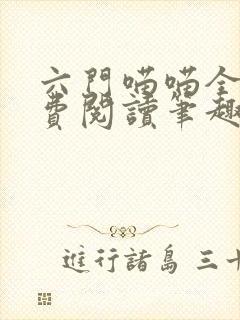 六門喵喵全
費閱讀筆趣
進行諸島 三十